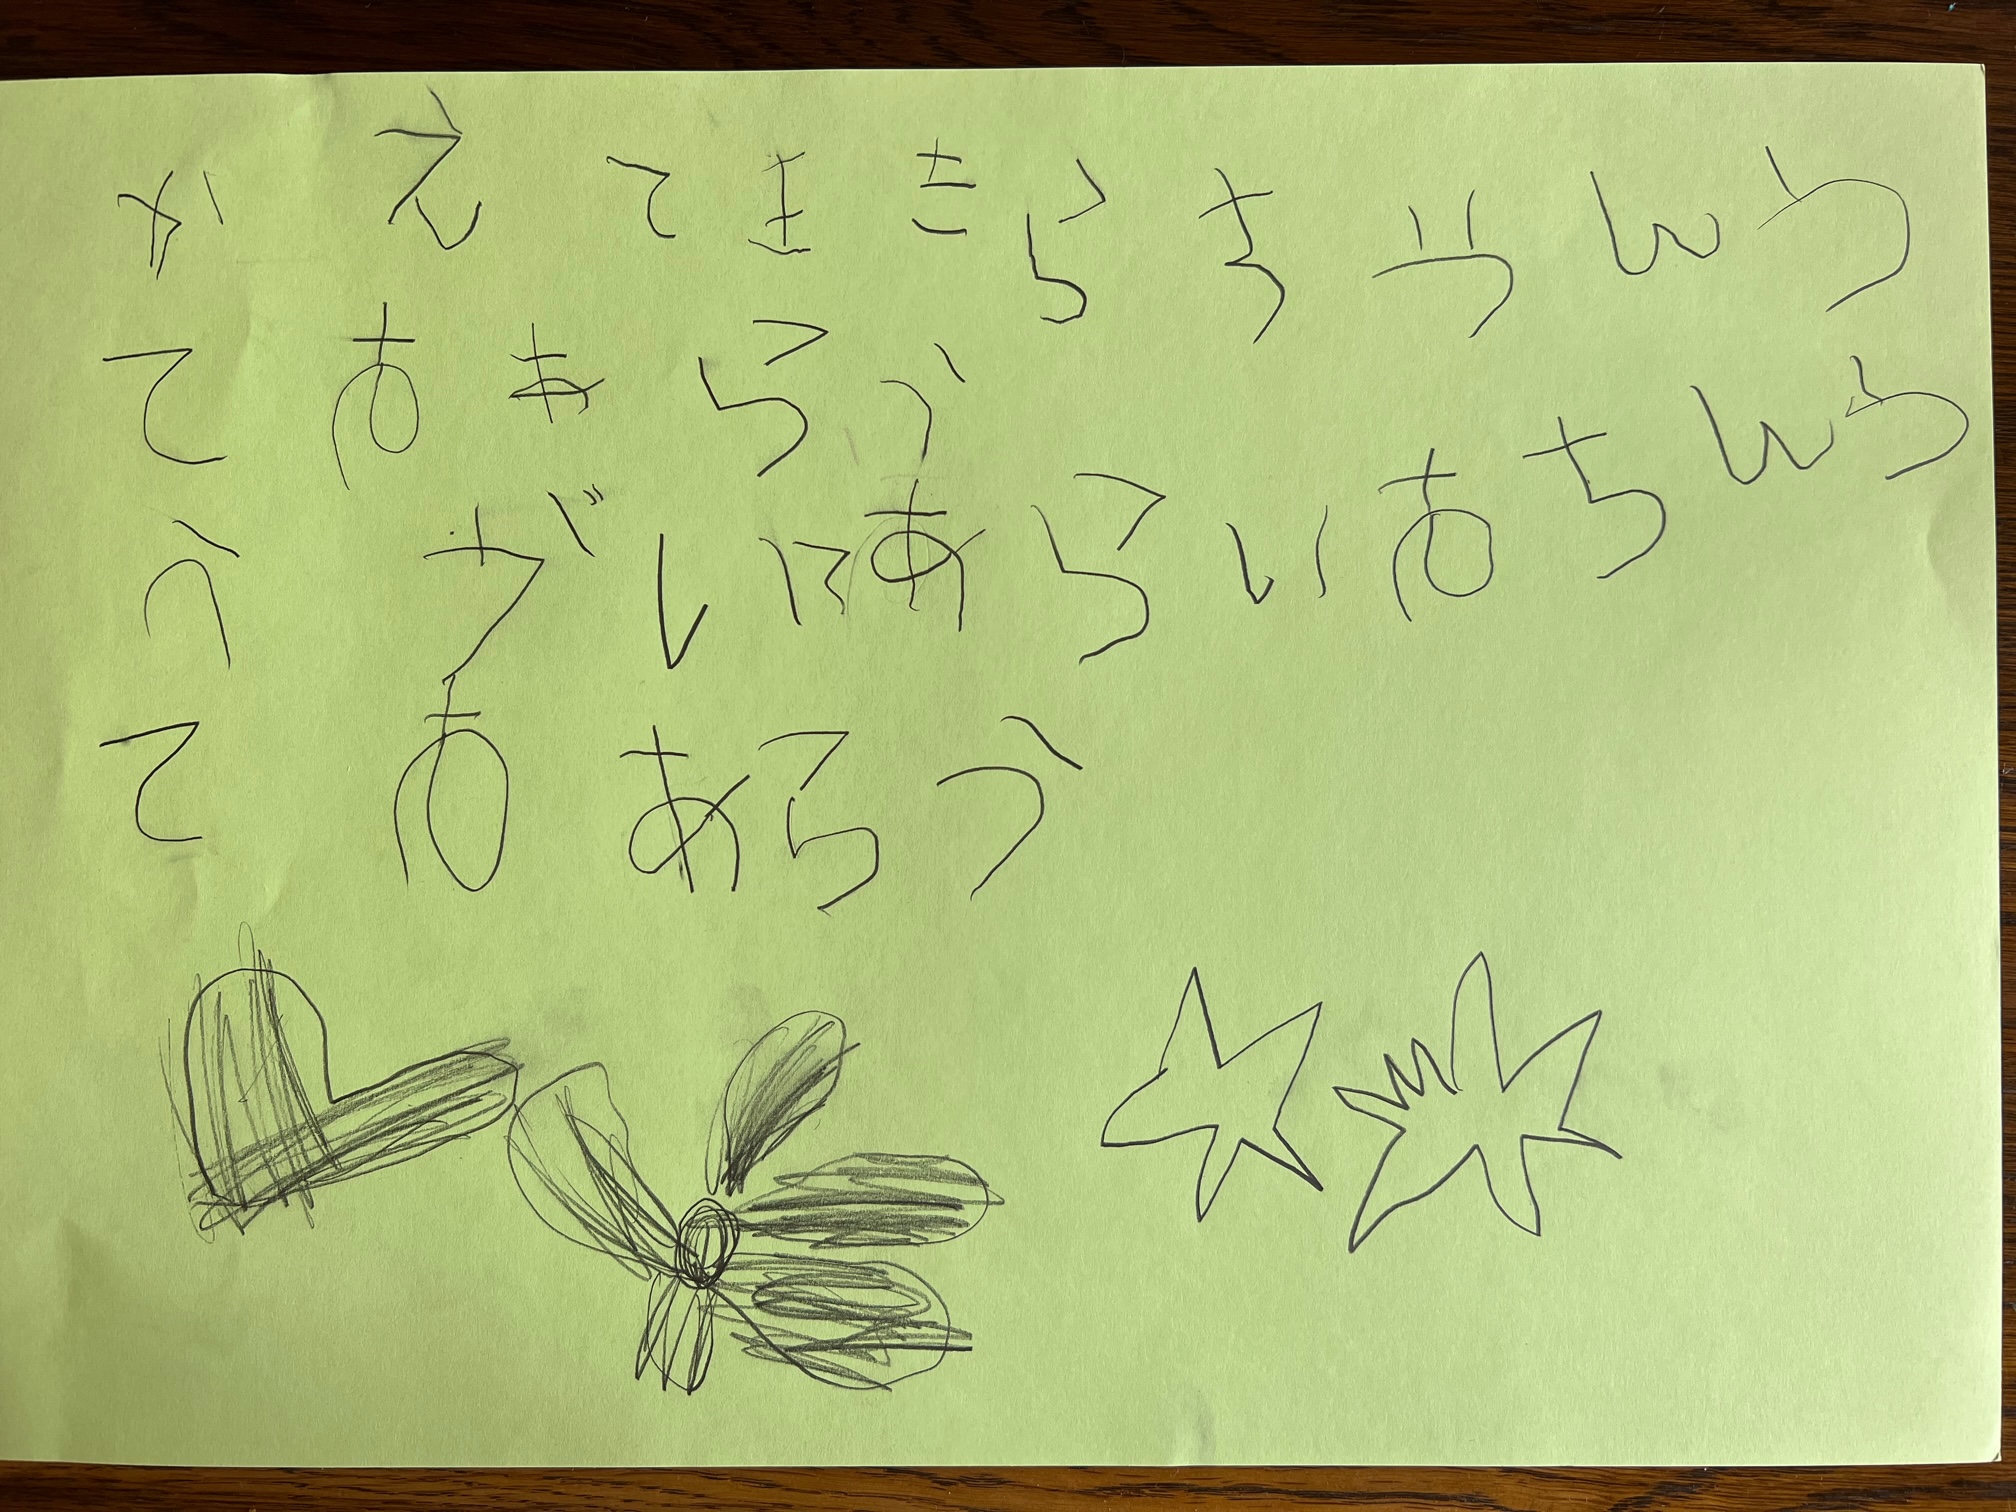 かえてきたらちやんと
ておあらう
うがいにあらいおちんと
ておあらう